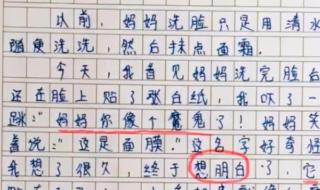 以前，妈妈洗脸只是用清水
随便洗洗，然后抹点面霜。
今天，我看见妈妈洗完脸后
还在脸上贴了张白纸，我吓一
跳：“妈妈你像个魔鬼了！妈妈笑
着说：“这是面膜”这名字好奇怪
我想了很久，终于想明白了，它